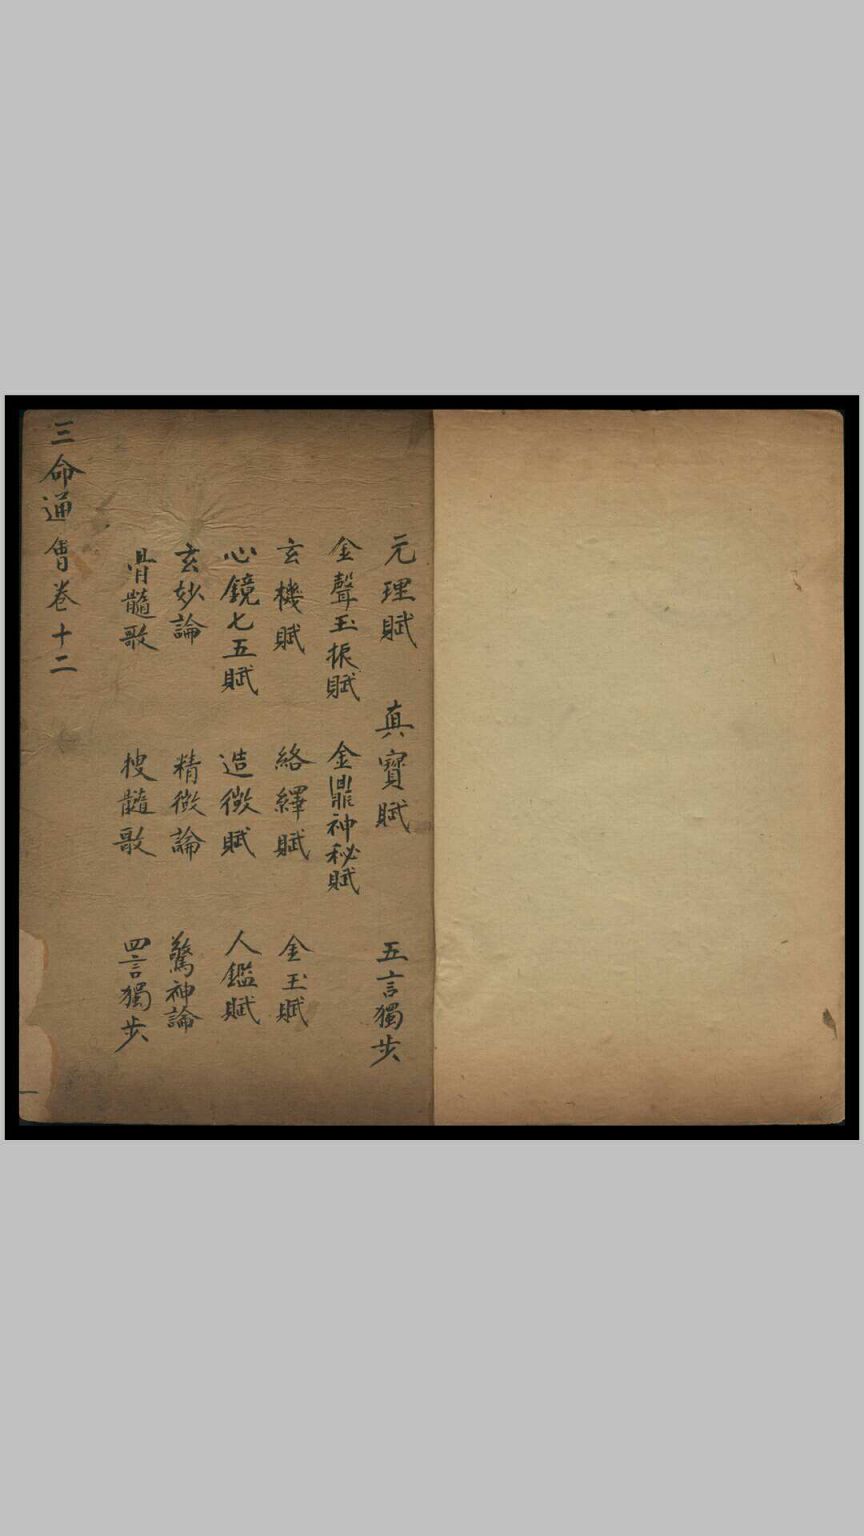 元理賦 真寶賦 五言獨步
金聲玉振賦 金鼎神秘賦
玄機賦 絡繹賦 金玉賦
心鏡七五賦 造微賦 人鑑賦
玄妙論 精微論 驚神論
骨髓歌 搜髓歌 四言獨步
三命通會卷十二